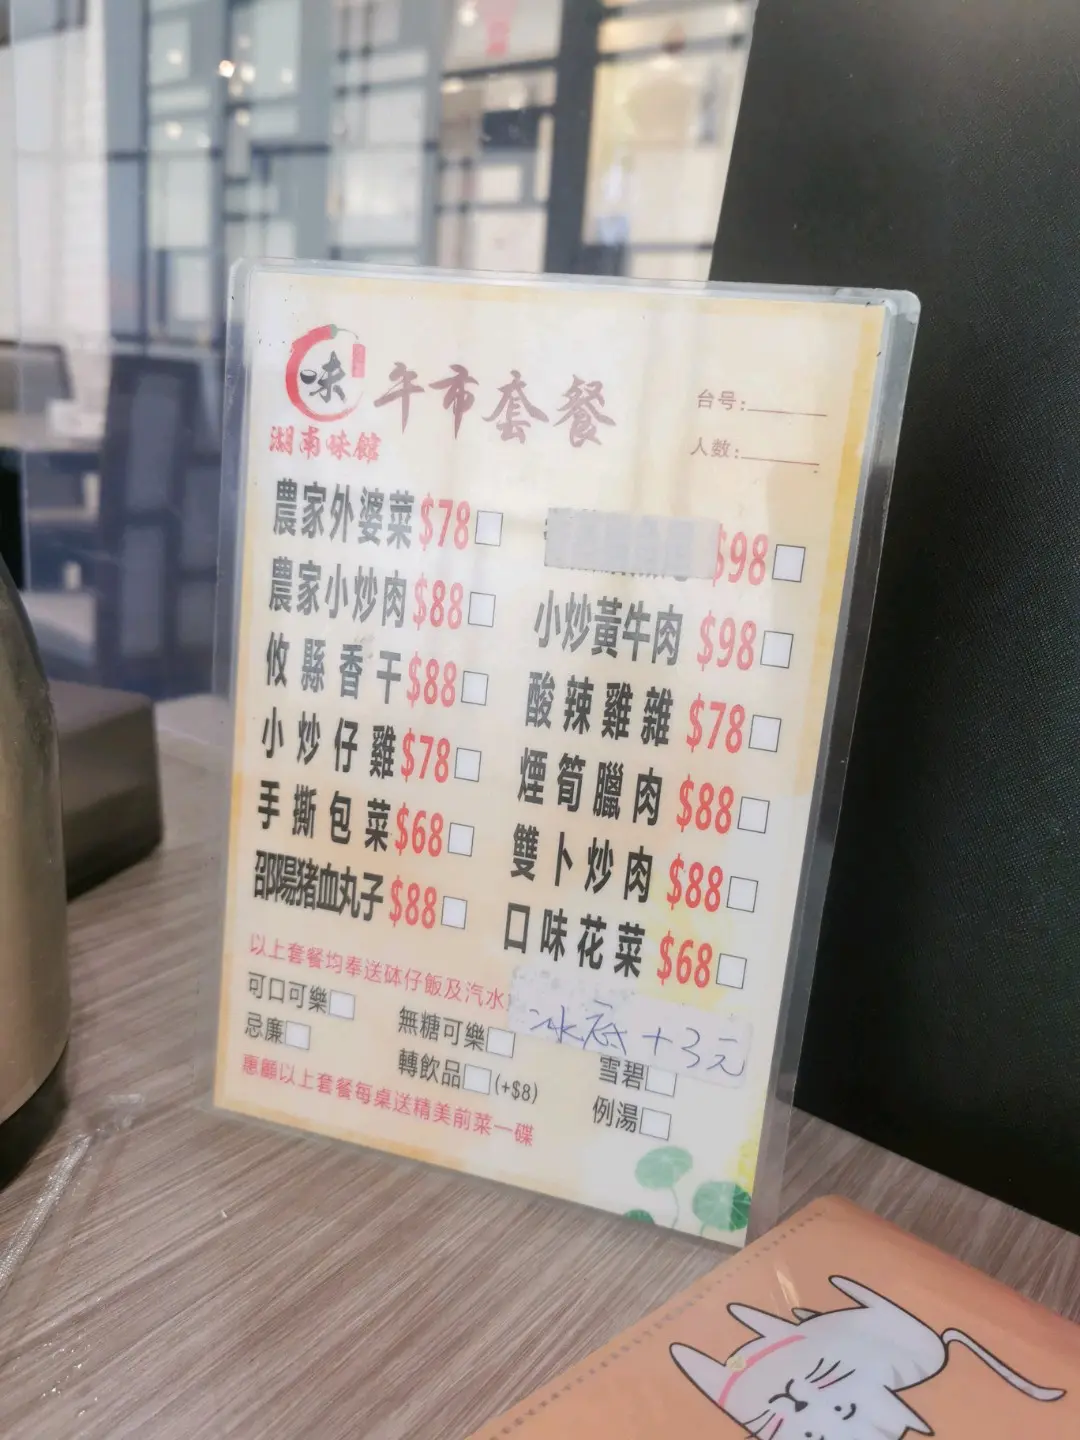 味
湖南味館
午市套餐
台号:
人数:
農家外婆菜$78
農家小炒肉$88
攸縣香干$88
小炒仔雞$78
手撕包菜$68
邵陽猪血丸子$88
$98
小炒黃牛肉 $98
酸辣雞雜 $78
煙筍臘肉 $88
雙卜炒肉 $88
口味花菜 $68
以上套餐均奉送砵仔飯及汽水
冰底+3元
可口可樂
無糖可樂
雪碧
忌廉
轉飲品(+$8)
例湯
惠顧以上套餐每桌送精美前菜一碟